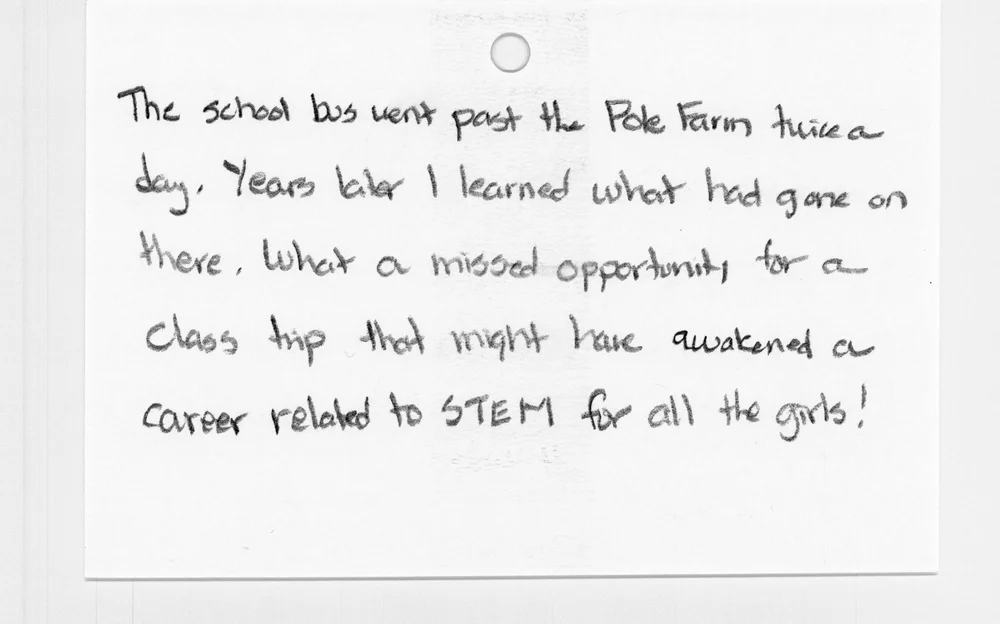 The school bus went past the Pole Farm twice a
day. Years later I learned what had gone on
there. What a missed opportunity for a
class trip that might have awakened a
career related to STEM for all the girls!